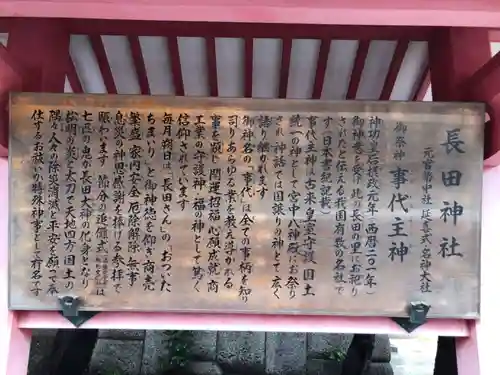 長田神社
元官幣中社 延喜式名神大社
御祭神 事代主神
神功皇后摂政元年(西暦二〇一年)
御神託を受け此の長田の里にお祀り
されたと伝える我国有数の名社で
す(日本書紀記載)
事代主神は古来皇室守護 国土
統一の神として宮中八神殿にお祭り
され 神話では国譲りの神として広く
語り継がれています
御神名の「事代」は全ての事柄を知り
司りあらゆる業を教え導かれる
事を顕し 開運招福 心願成就 商
工業の守護神 福の神として篤く
信仰されています
毎月朔日は「長田さん」の「おついた
ちまいり」と御神徳を仰ぎ 商売
繁盛 家内安全 厄除解除 無事
息災の神恩感謝を捧げる参拝で
賑わいます 節分の追儺式
七匹の鬼が長田大神の化身となり
松明の炎と太刀で天地四方国土の
隅々の災を除き消滅と平安を願って本
住するお祓いの特殊神事として有名です